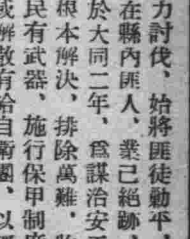 力討伐、始將匪徒勦平、
在縣內匪人、業已絕跡、
於大同二年、爲謀治安
根本解決、排除萬難、
民有武器、施行保甲制度
或解散有給自衛團、以